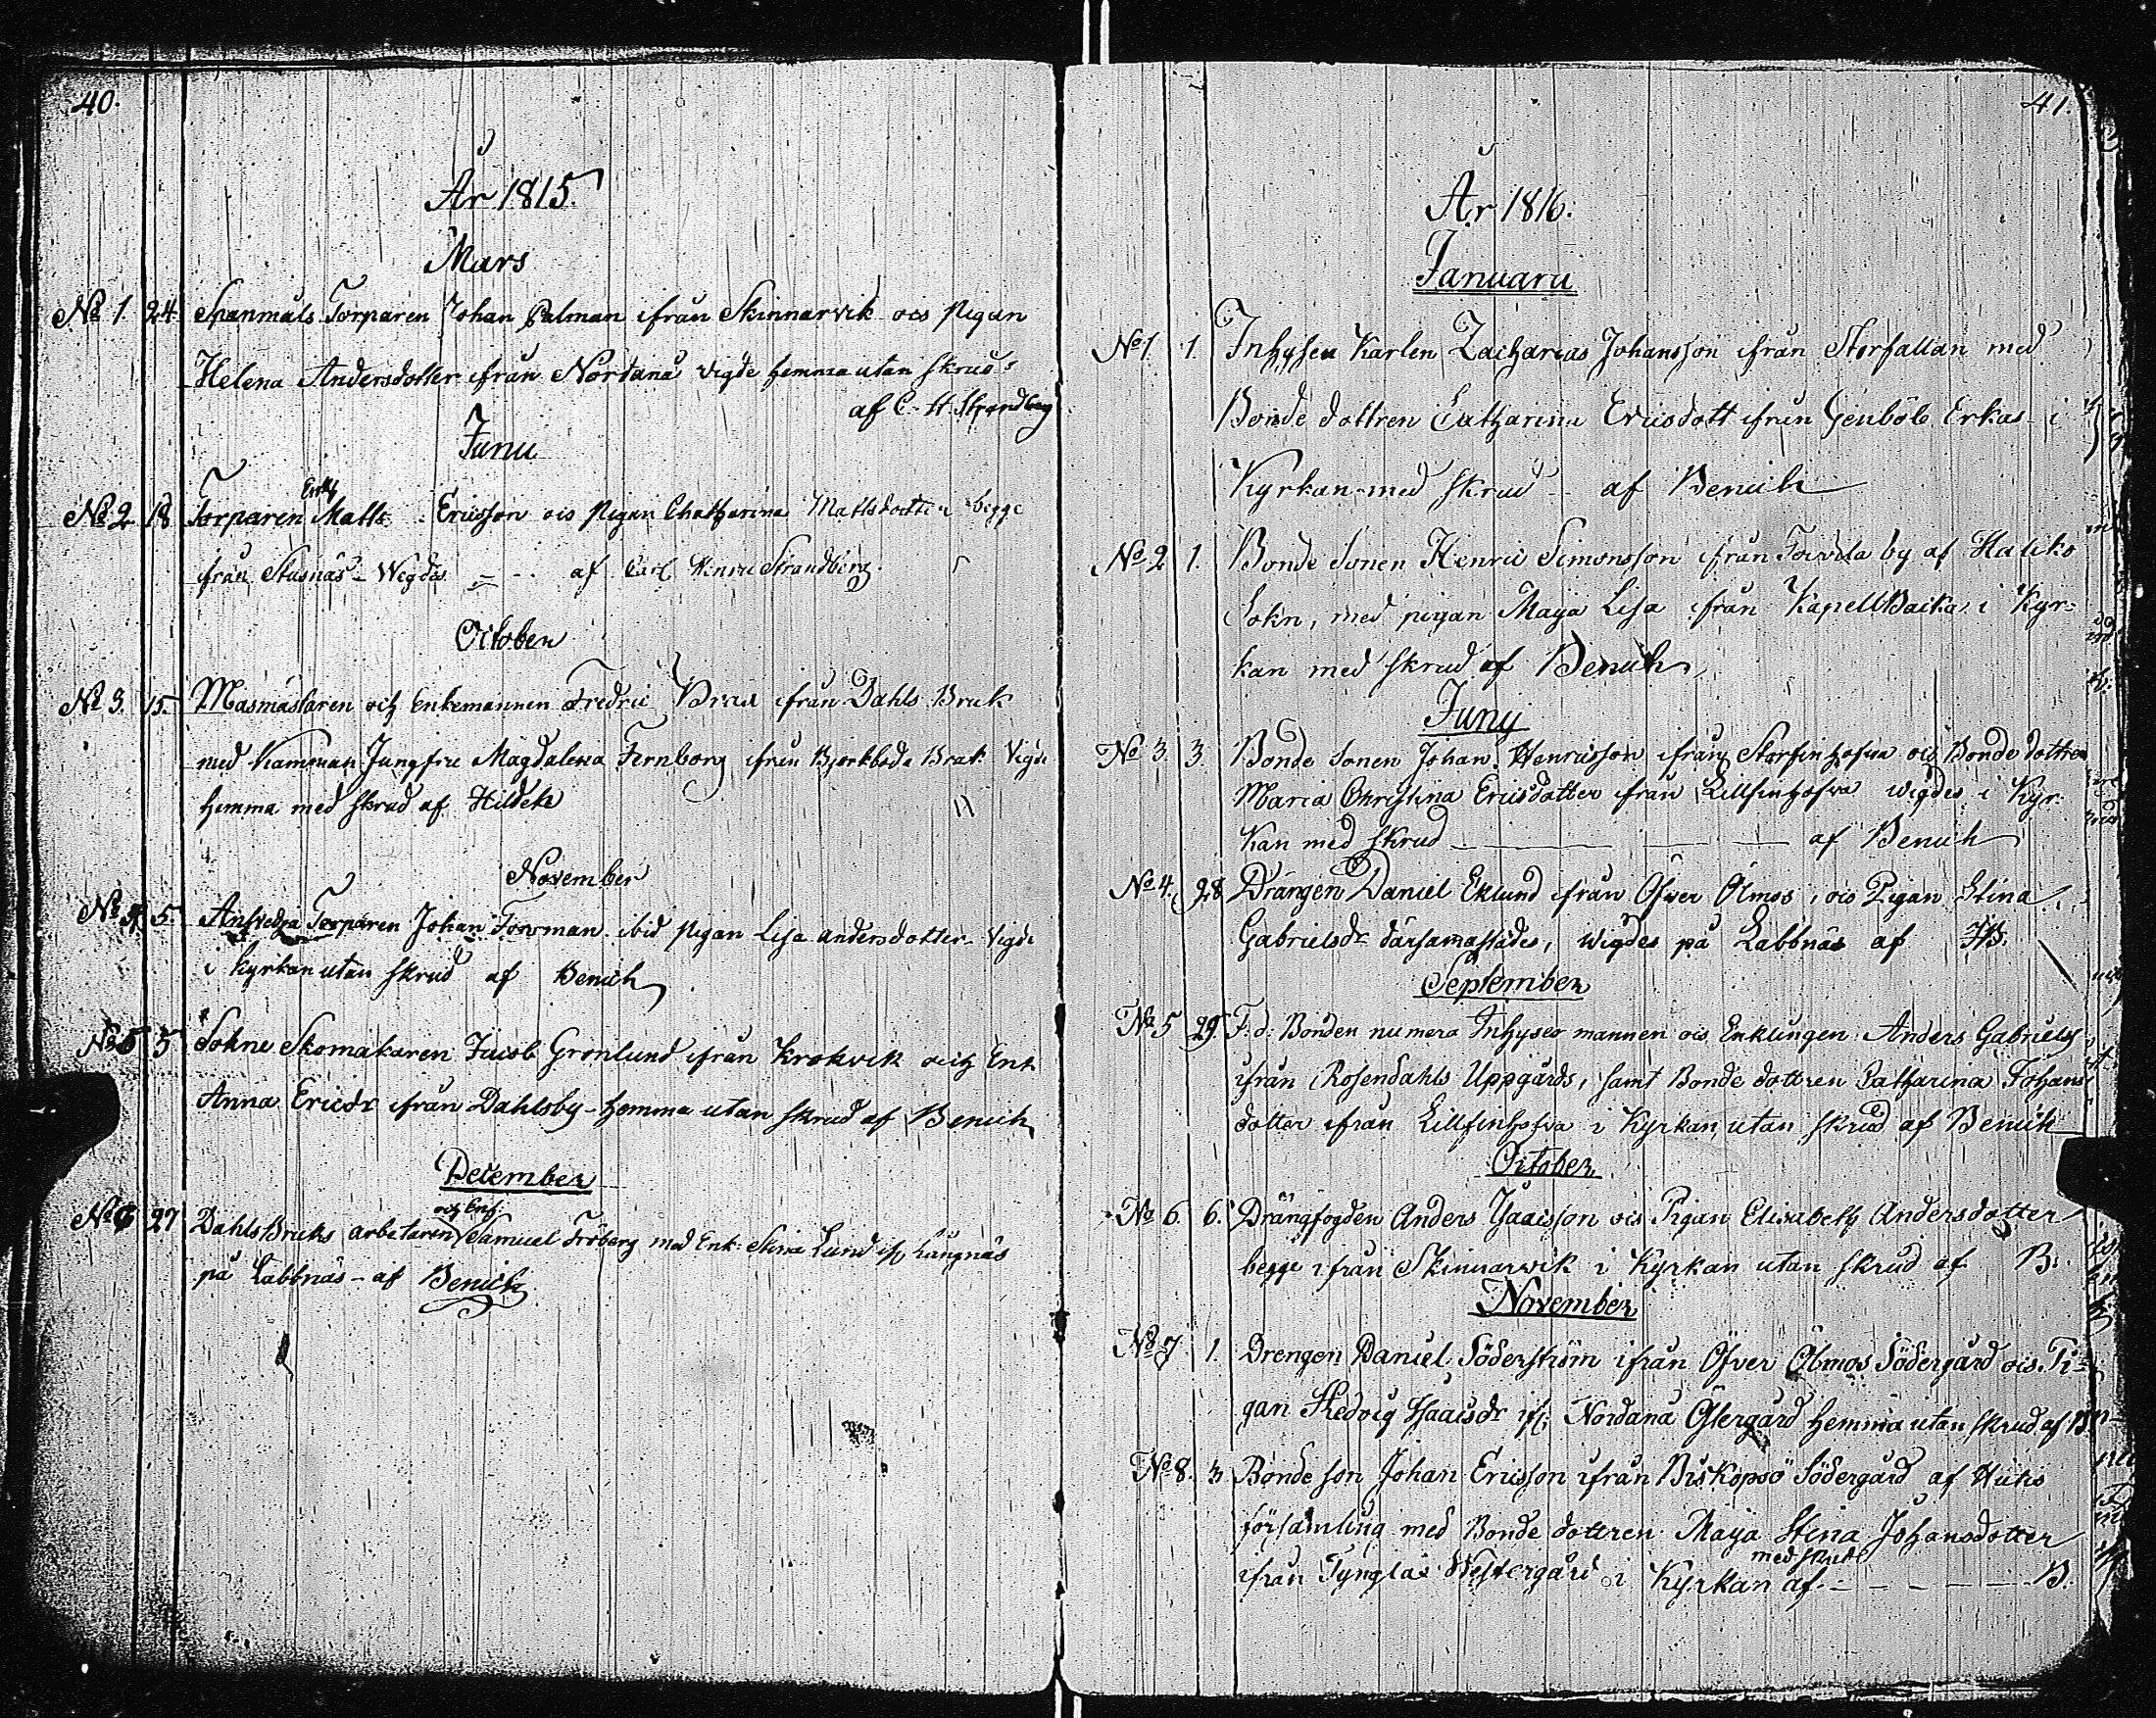 40.
År 1815.
Mars
No 1. 24. Spanmåls Torparen Johan Palman ifrån Skinnarvik ocs Pigan
Helena Andersdotter ifrån Nordanå vigde hemma utan skrud
af C. H. Strandberg
Junii
Enkl
No 2 18 Torparen Matts Ericsson ocs Pigan Chatharina Mattsdotter begge
ifrån Stusnäs - Wigdes - - af Carl Henric Strandberg.
October
No 3. 15. Masmästaren och Enkemannen Fredric ifrån Dahls Bruk
med Mamman Jungfru Magdalena Fernborg ifrån Björkboda Bruk Vigde
hemma med skrud af Hildeh
November
No 4 5. Torparen Johan Forsman ibid Pigan Lisa andersdotter Vigde
i kyrkan utan skrud af Benich
No 5 5 Sokne Skomakaren Jacob Grönlund ifrån Krokvik och Enk
Anna Ericdr ifrån Dahlsby - hemma utan skrud af Benich
December
och Enk:
No 6 27 Dahls Bruks arbetaren Samuel Fröberg med Enk: Stina Lund if, Långnäs
på Labbnäs - af Benich
41.
År 1816.
Januarii
No 1. 1. Inhyses Karlen Zacharias Johansson ifrån Storfallan med
Bonde dottren Catharina Ericsdott ifrån Genböle Erkas i
Kyrkan med skrud - af Benich
No 2 1. Bonde Sonen Henric Simonsson ifrån Toivila by af Haliko
Sokn, med pigan Maja Lisa ifrån Kapell Backa i Kyr-
kan med skrud af Benich
Junij
No 3. 3. Bonde Sonen Johan Henricsson ifrån Storfinhofva ocs Bonde dottren
Maria Christina Ericsdotter ifrån Lillfinhofva wigdes i Kyr-
kan med skrud - - - af Benich
No 4. 28 Drängen Daniel Eklund ifrån Öfver Ölmos, ocs Pigan Stina
Gabrielsdr därsamastädes, wigdes på Labbnäs af JB.
September
No 5 29. F: d: Bonden numera Inhyses mannen ocs Enklingen Anders Gabriels
ifrån Rosendahls Uppgårds, samt Bonde dottren Catharina Johans
dotter ifrån Lillfinhofva i Kyrkan utan skrud af Benich
October
No 6. 6. Drängfogden Anders Isacsson ocs Pigan Elisabeth Andersdotter
begge ifrån Skinnarwik i Kyrkan utan skrud af B:
November
No 7 1. Drengen Daniel Söderström ifrån Öfver Ölmos Södergård ocs Pi-
gan Hedvig Isacsdr if, Nordanå Östergård hemma utan skrud af B
No 8. 3. Bonde son Johan Ericsson ifrån Biskopsö Södergård af Hitis
församling med Bonde dottren Maja Stina Johansdotter
med skrud
ifrån Tynglax Westergård i Kyrkan af - - - - B.